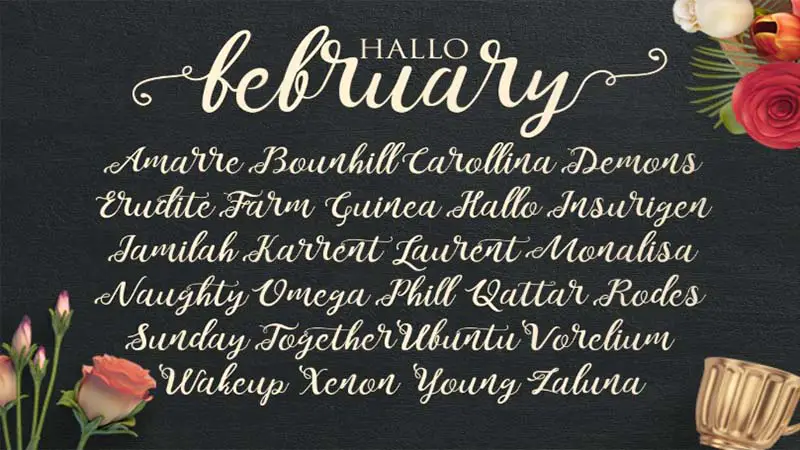 HALLO
february
Amarre Bounhill Carollina Demons
Erudite Farm Guinea Hallo Insurigen
Jamilah Karrent Laurent Monalisa
Naughty Omega Phill Qattar Rodes
Sunday Together Ubuntu Vorelium
Wakeup Xenon Young Zaluna